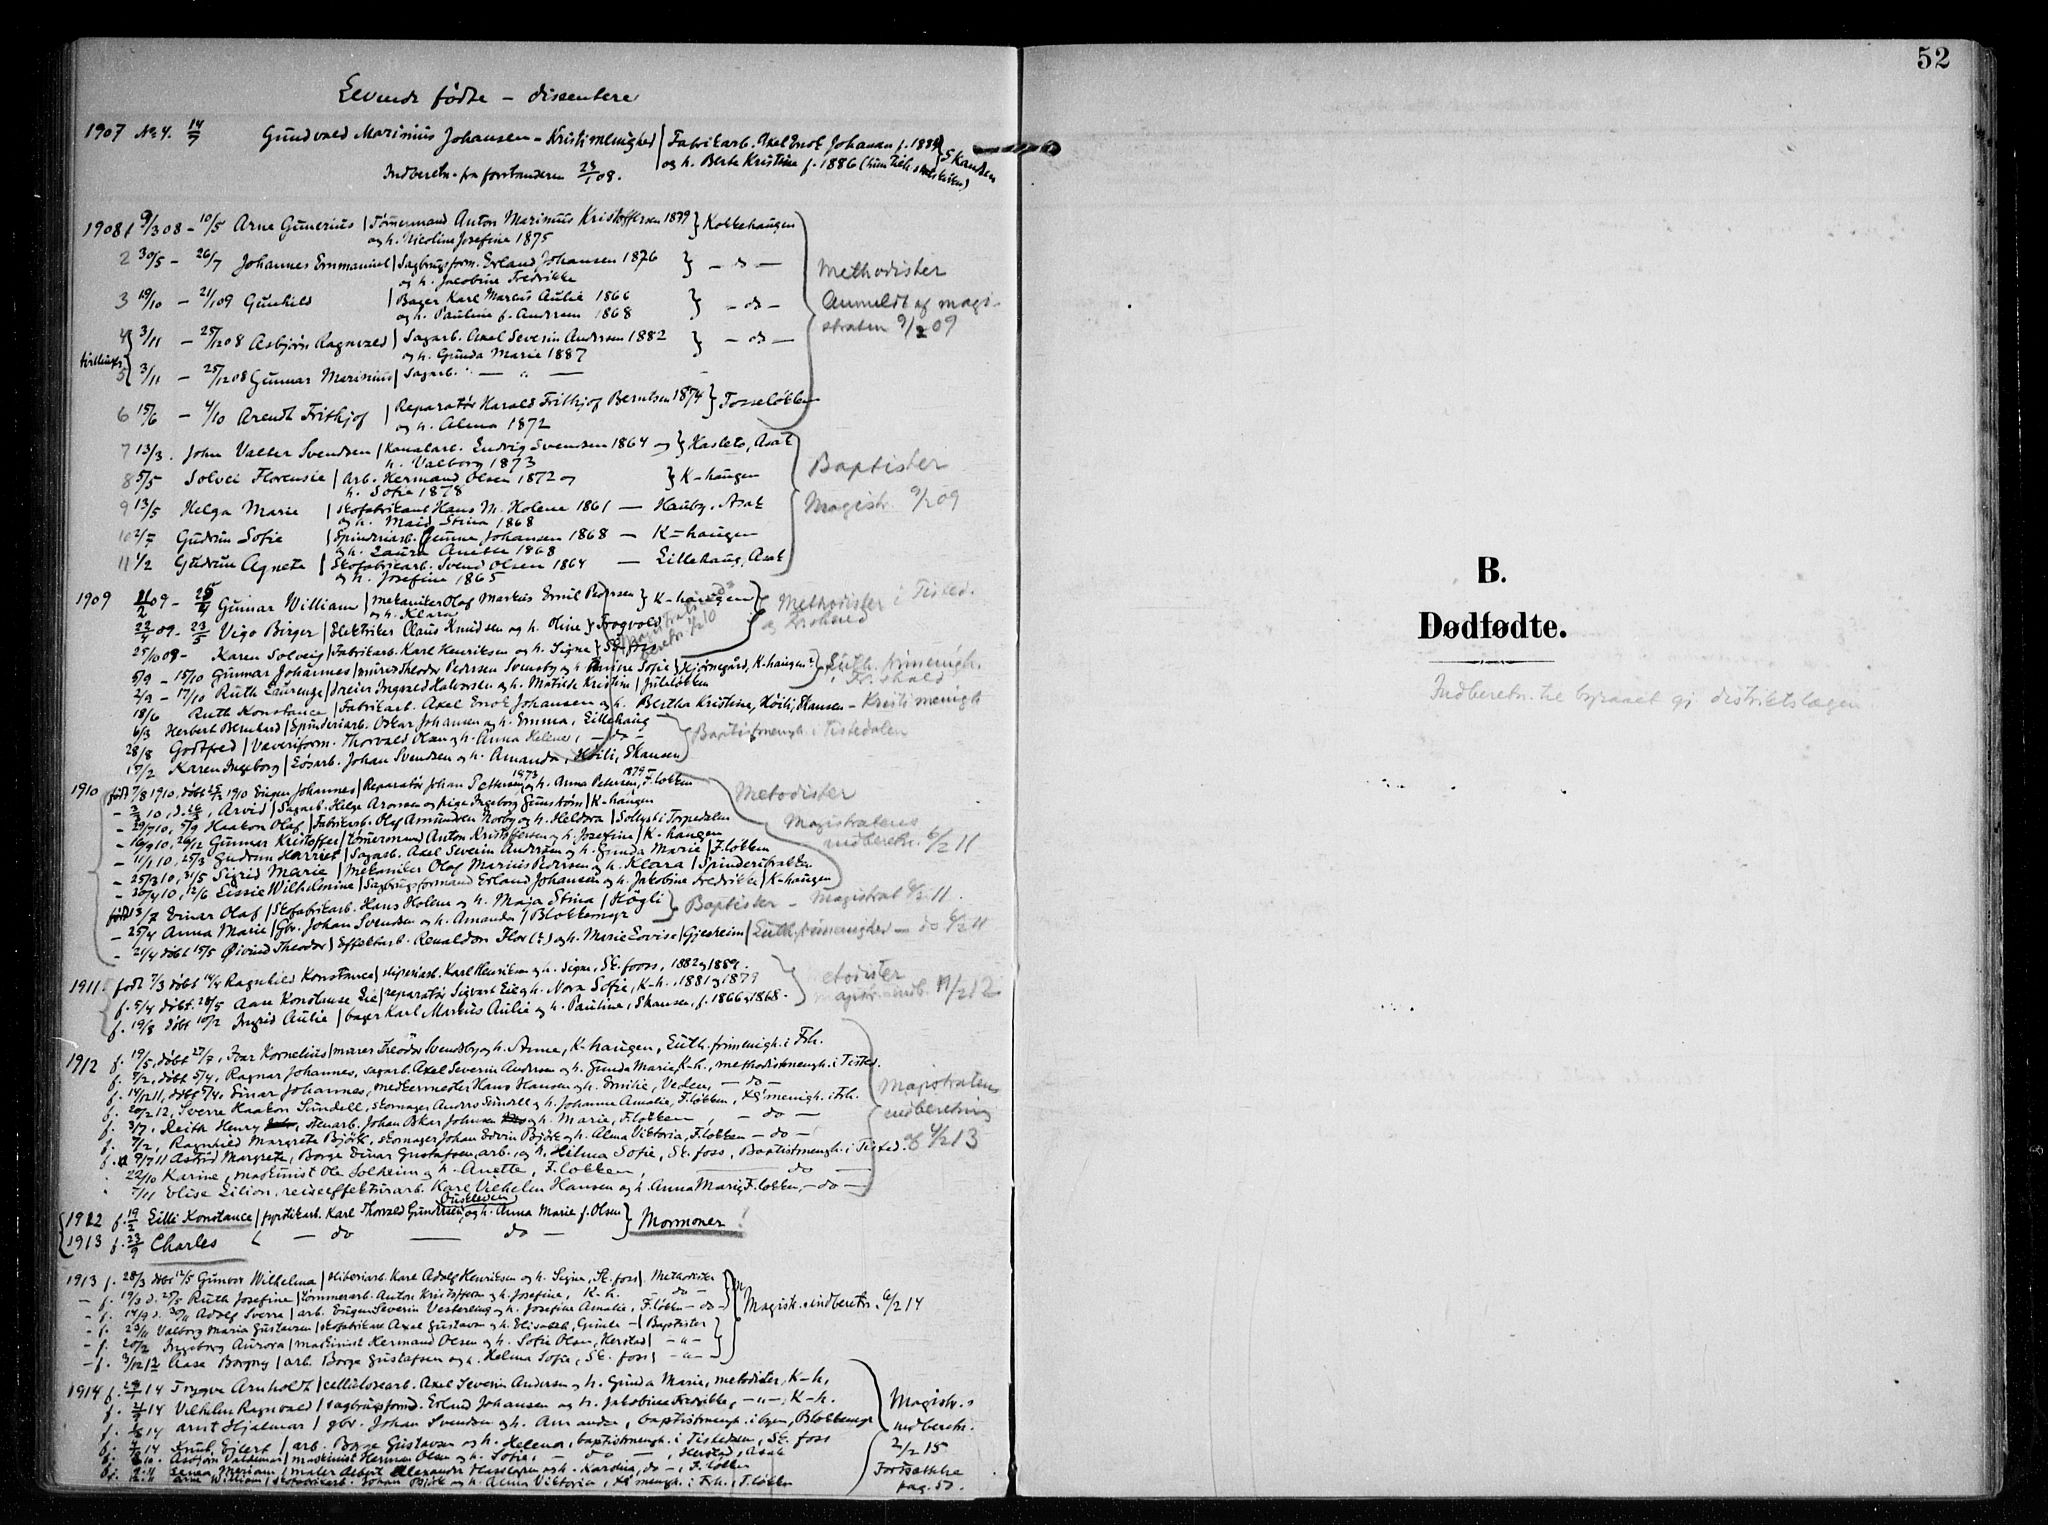 Levende fødte – dissentere
1907 No 4. 14/9 Gundvald Marinius Johansen – Kristi menighed | Fabrikarb. Axel Enok Johansen f. 1884 } Skansen
og h. Berte Kristine f. 1886
Indberetn. fra forstanderen 23/1 08.
1908 1 9/3 08 – 10/5 Arne Gunerius | Tømermand Anton Marinius Kristoffersen 1879 } Kolbehaugen
og h. Nicoline Josefine 1875
2 30/5 – 26/7 Johannes Emmanuel | Sagbrugsform. Erland Johansen 1876 } – do –
og h. Jacobine Fredrikke
3 19/10 – 21/1 09 Gunhild | Bager Karl Marcus Aulie 1866 } – do –
og h. Pauline f. Andersen 1868
Methodister
Anmeldt af magi-
straten 9/2 09
4 3/11 – 25/12 08 Asbjørn Ragnvald | Sagarb. Axel Severin Andersen 1882 } – do –
og h. Gunda Marie 1887
tvillinger
5 3/11 – 25/12 08 Gunnar Marinius | Sagarb. – " –
6 15/6 – 4/10 Arendt Frithjof | Reparatør Harald Frithjof Berntsen 1874 } Tosseløkken
og h. Alma 1872
7 13/3. John Valter Svendsen | Kanalarb. Ludvig Svendsen 1864 og } Hasleto, Asak
h. Valborg 1873
8 5/5 Solvei Florensie | arb. Hermand Olsen 1872 og } K-haugen
h. Sofie 1878
Baptister
Magistr. 9/2 09
9 13/5 Helga Marie | Skofabrikant Hans M. Holene 1861 – Hauby. Asak
og h. Maid Stina 1868
10 2/7 Gudrun Sofie | Spinderiarb. Gunne Johansen 1868 – K-haugen
og h. Laura Anette 1868
11 1/2 Gudrun Agnete | Skofabrikarb. Svend Olsen 1864 – Lillehaug, Asak
og h. Josefine 1865
1909 Gunnar William | Mekaniker Olaf Markus Emil Pedersen } K-haugen
og h. Klara
Methodister i Tisted.
22/4 09 – 23/5 Vigo Birger | Elektriker Claus Knudsen og h. Oline } Skogvold
25/10 09 – Karen Solveig | Fabrikarb. Karl Henriksen og h. Signe } Sk-foss
5/9 – 15/10 Gunnar Johannes | murer Theodor Pedersen Svensby og h. Sofie } Hjørnegård, K-haugen
Luth. frimenigh.
i Fr.shald
2/9 – 17/10 Ruth Laurenze | dreier Ingvald Halvorsen og h. Matilde Kristin | Juleløkken
18/6 Ruth Konstance | Fabrikarb. Axel Enok Johansen og h. Bertha Kristine, Höili, Skansen – Kristi menigh
6/3 Herbert Bernhard | Spinderiarb. Oskar Johansen og h. Emma, Lillehaug
28/8 Godtfred | Væveriform. Thorvald Olsen og h. Anna Helene, – do –
Baptistmenigh. i Tistedalen
17/2 Karen Ingeborg | Løsarb. Johan Svendsen og h. Amanda, Høili, Skansen
1910 født 7/8 1910, døbt 1910 Eugen Johannes | Reparatør Johan Pettersen 1873 og h. Anna Petersen 1879, F.løkken
Arvid | Sagarb. Helge Aronsen og pige Ingeborg | K-haugen
– 29/7 10, 5/9 Haakon Olaf | Fabrikarb. Olaf Amundsen Norby og h. Heldora | Solli i Torpedalen
– 16/9 10, 26/12 Gunnar Kristoffer | tømermand Anton Kristoffersen og h. Josefine | K-haugen
– 11/1 10, 25/3 Gudrun Harriet | Sagarb. Axel Severin Andersen og h. Gunda Marie | F.løkken
– 25/3 10, 31/5 Sigrid Marie | Mekaniker Olaf Marius Pedersen og h. Klara | Spinderibakken
– 20/4 10, 12/6 Lissie Wilhelmine | Sagbrugsformand Erland Johansen og h. Jakobine Fredrikke | K-haugen
Metodister
Magistratens
indberetn. 6/2 11
født 13/7 Einar Olaf | Skofabrikarb. Hans Holene og h. Maja Stina | Högli
– 25/4 Anna Marie | Gbr. Johan Svendsen og h. Amanda | Blokkemyr
Baptister – Magistrat 6/2 11
– 21/4 døbt 15/5 Øivind Theodor | Effektarb. Renaldon Flor (?) og h. Marie Lovise | Gjesheim | Luth. frimenighed – do 6/2 11
1911 født 7/3 døbt 14/4 Ragnhild Konstance | sliperiarb. Karl Henriksen og h. Signe, Sk. foss, 1882 og 1889.
f. 5/4 døbt. 28/5 Aase Konstanse Lie | reparatør Sigvart Lie og h. Nora Sofie, K-h., 1881 og 1879
f. 19/8 døbt 10/2 Ingrid Aulie | bager Karl Markus Aulie og h. Pauline, Skansen, f. 1866 og 1868.
Metodister
magistr. indb. 19/2 12
1912 f. 19/5, døbt 27/7, Ivar Kornelius | murer Theodor Svendsby og h. Anne, K-haugen, Luth. frimenigh. i Frh.
f. 5/2, døbt 5/4, Ragnar Johannes, sagarb. Axel Severin Andersen og h. Gunda Marie, K-h., methodistmenigh. i Tisted.
f. 14/12 11, døbt 5/4, Einar Johannes, Hans Hansen og h. Emilie, Veden, – do –
f. 20/2 12, Sverre Haakon Sundell, skomager Anders Sundell og h. Johanne Amalie, F.løkken, Kr menigh. i Frh.
f. 3/7, Reith Henry, stenarb. Johan Oskar Johnsen og h. Marie, F.løkken – do –
f. 7/2, Ragnhild Margrete Björk, skomager Johan Edvin Björk og h. Alma Viktoria, F.løkken – do –
f. 9/7 11 Astrid Margrete, Borge Einar Gustafsen, arb., og h. Hilma Sofie, Sk. foss, Baptistmenigh. i Tisted.
22/10 Karine, maskinist Ole Solheim og h. Anette, F.løkken, – do –
7/11 Elise Lilian. reiseeffekturarb. Karl Vilhelm Hansen og h. Anna Marie, F.løkken, – do –
Magistratens
indberetning
af 4/2 13
1912 f. 19/2 Lilli Konstance | fyrstikarb. Karl Thorvald Gundersen og h. Anna Marie f. Olsen } Mormoner!
1913 f. 23/9 Charles – do – do –
1913 f. 28/3 døbt 12/5 Gunvor Wilhelma | sliberiarb. Karl Adolf Henriksen og h. Signe, Sk. foss | Methodister
– f. 19/3 d. 25/5 Ruth Josefine | tømmerarb. Anton Kristoffersen og h. Josefine, K-h. – do –
– f. 14/9 d. 30/11 Adolf Sverre | arb. Eugen Severin Vestereng og h. Josefine Amalie, F.løkken – do –
– f. 23/11 Valborg Maria Gustavsen | skofabrikarb. Axel Gustavsen og h. Elisabeth, Grimle – | Baptister
– f. 20/2 Ingeborg Aurora | maskinist Hermand Olsen og h. Sofie Olsen, Herstad | – " –
– f. 3/12 12 Aase Borgny | arb. Borge Gustafsen og h. Helma Sofie, Sk. foss | – " –
Magistr. indberetn. 6/2 14
1914 f. 14 Trygve Arnholdt | cellulosearb. Axel Severin Andersen og h. Gunda Marie, metodister, K-h,
f. 14 Vilhelm Ragnvald | sagbrugsformd. Erland Johansen og h. Jakobine Fredrikke, – " –, K-h.
f. 14 Arnt Hjalmar | gbr. Johan Svendsen og h. Amanda, baptistmengh. i byen, Blokkemyr
f. 14 Knut Eilert | arb. Borge Gustavsen og h. Helena, baptistmengh. i Tistedalen, Sk. foss
f. Asbjørn Valdemar | maskinist Herman Olsen og h. Sofie, – do –, Herstad, Asak
f. | maler Albert Alexander og h. Karolina, do –, F.løkken
f. Arne William | skofabrikarb. Johan Björk og h. Alma Viktoria, Kr menigh. i Frh., F.løkken
Magistr.s
indberetn.
2/2 15
Fortsættelse
pag. 50.
52
B.
Dødfødte.
Indberetn. til byraaet gj. distriktslægen